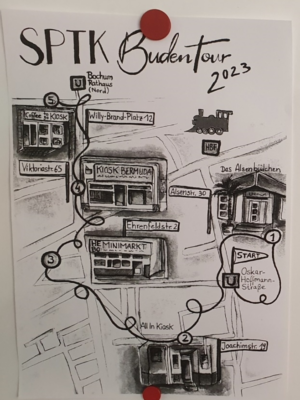 SPTK BudenTour
2023
U
Bochum
Rathaus
(Nord)
5
Coffee KIOSK
Willy-Brand-Platz 12
HBF
Viktoriastr. 65
KIOSK BERMUDA
4
Das Alsenbüdchen
Alsenstr. 30
Ehrenfeldstr. 2
HE MINIMARKT
1
START
3
U
Oskar-
Hoffmann-
Straße
All In Kiosk
2
Joachimstr. 19